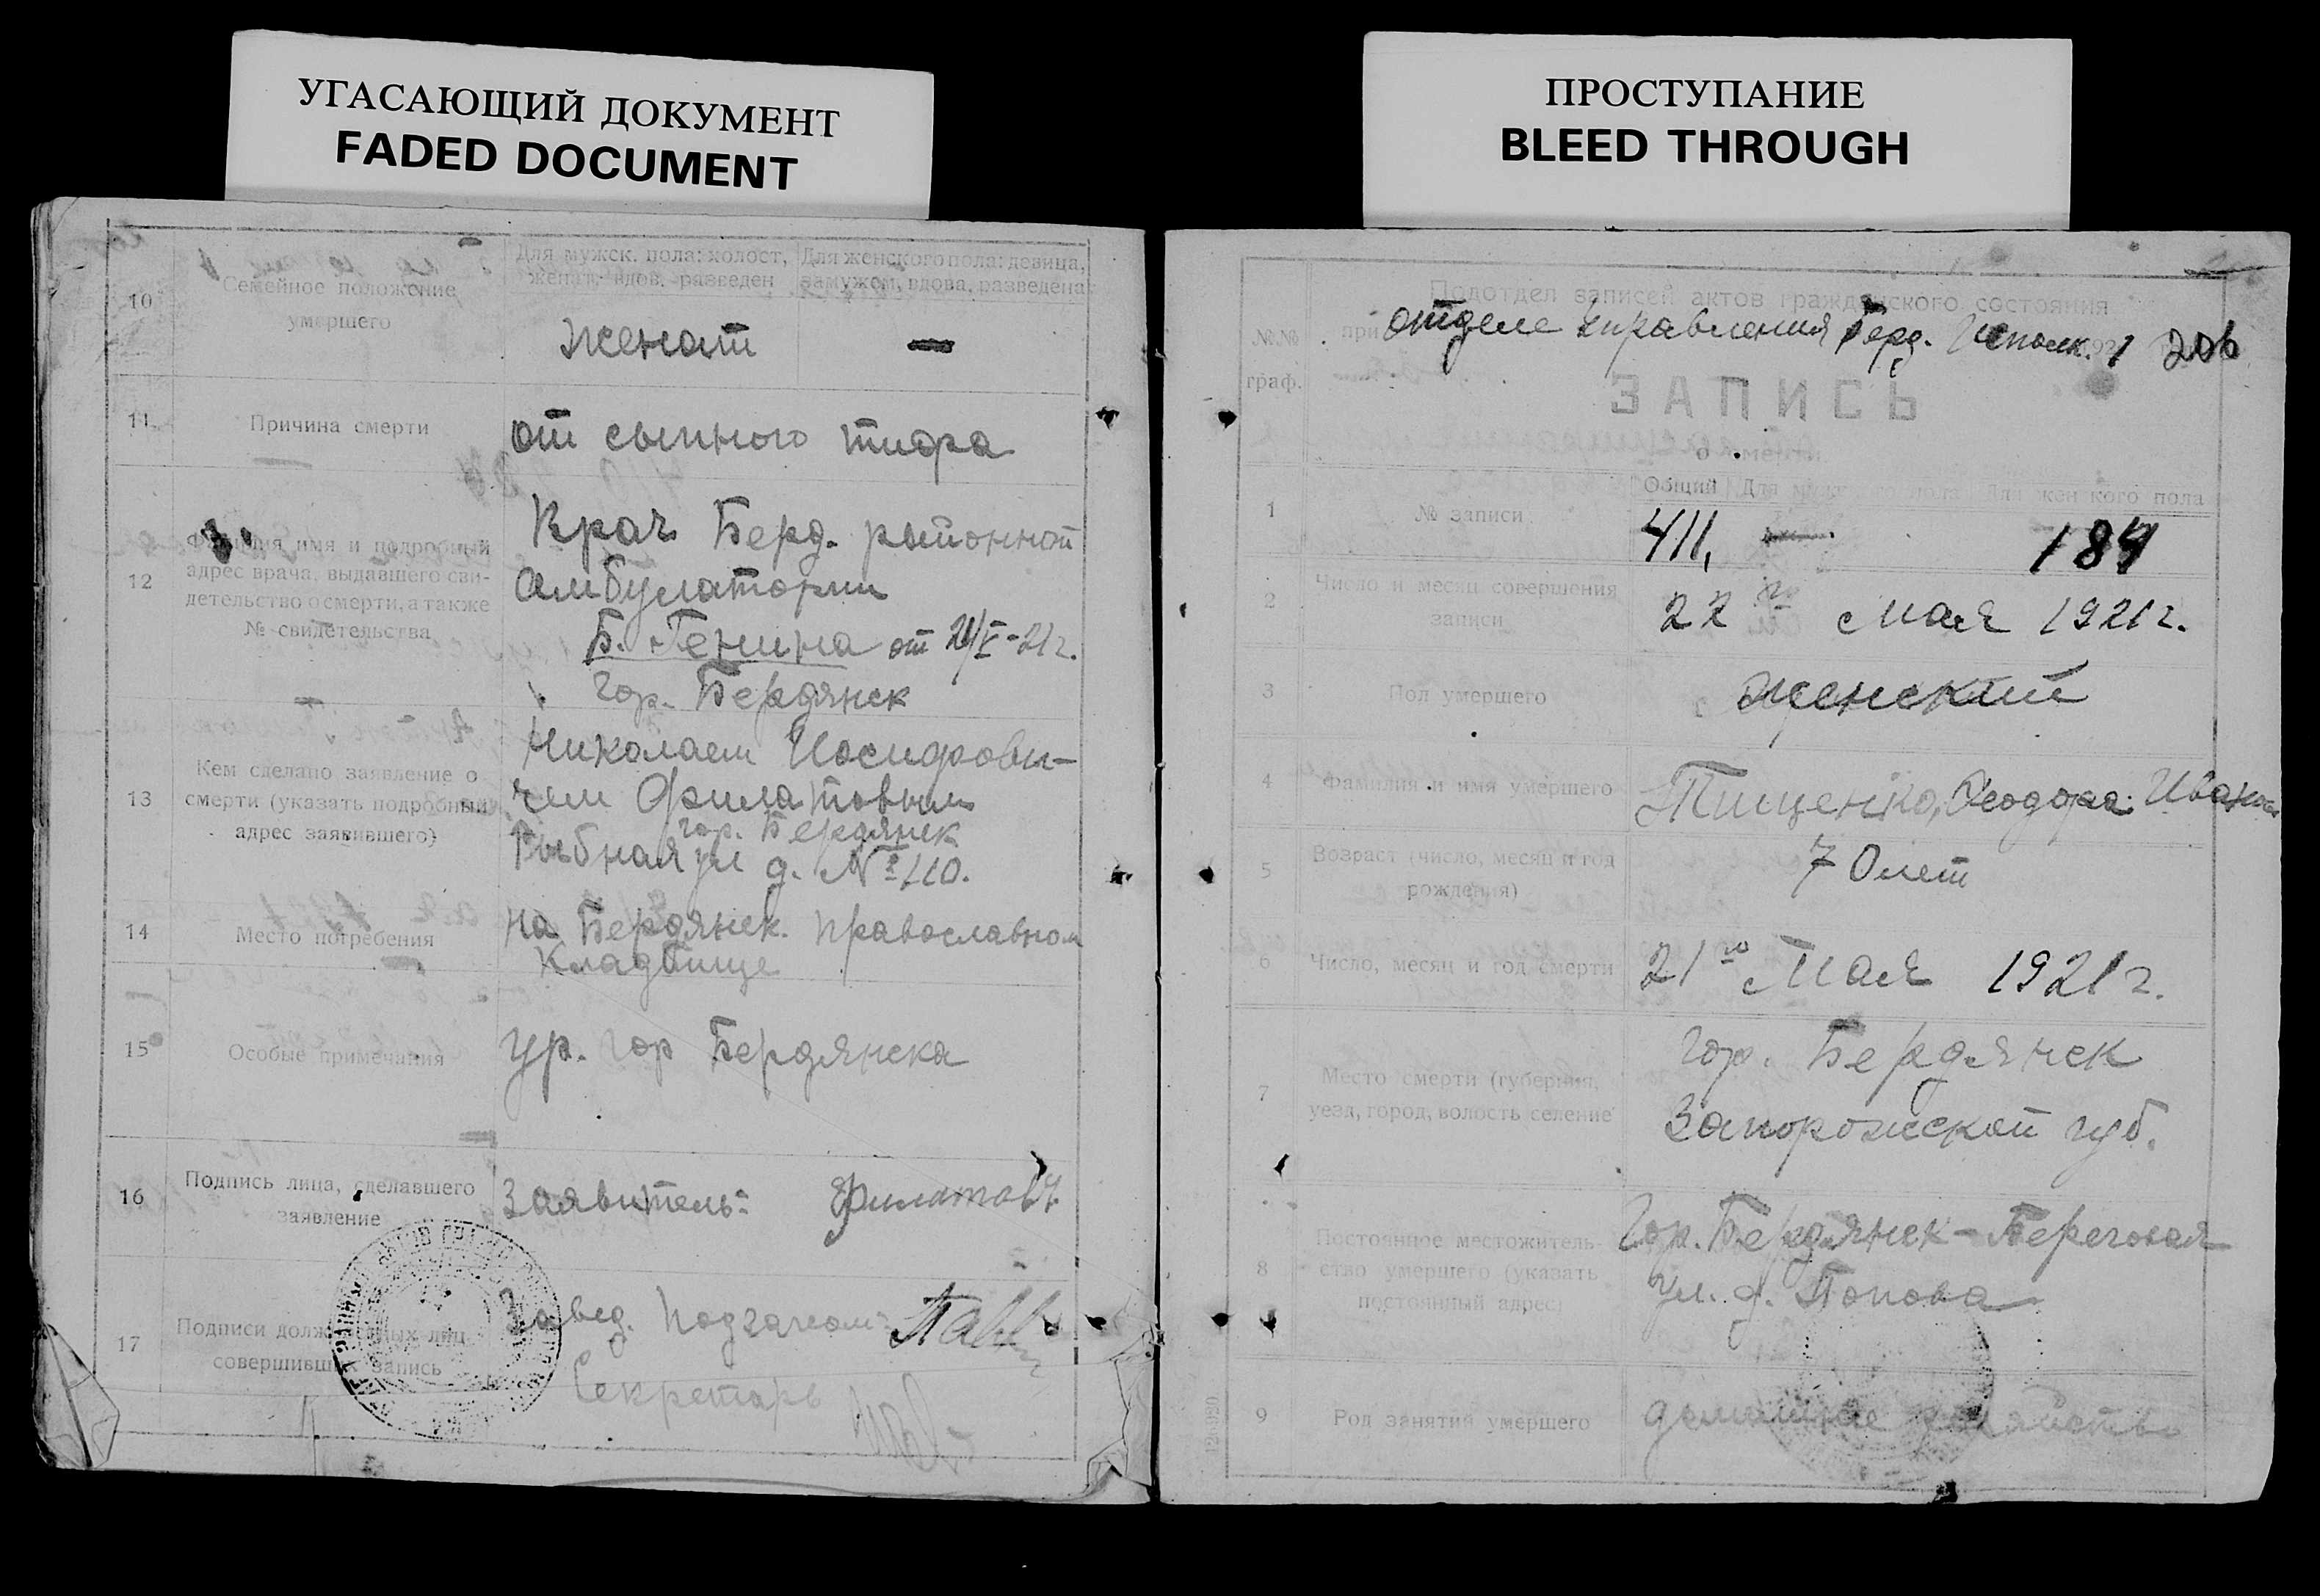 УГАСАЮЩИЙ ДОКУМЕНТ
FADED DOCUMENT
10
Семейное положение
умершего
Для мужск. пола: холост,
женат, вдов, разведен
Для женского пола: девица,
замужем, вдова, разведена
Женат
—
11
Причина смерти
от сыпного тифа
12
Фамилия имя и подробный
адрес врача, выдавшего сви-
детельство о смерти, а также
№ свидетельства
Врач Берд. районной
амбулатории
Б. Генина от 21/V-21 г.
гор. Бердянск
13
Кем сделано заявление о
смерти (указать подробный
адрес заявившего)
Николаем Иосифови-
чем Филатовым
гор. Бердянск
Рыбная ул д. № 110.
14
Место погребения
на Бердянск. православном
кладбище
15
Особые примечания
ур. гор Бердянска
16
Подпись лица, сделавшего
заявление
Заявитель: Филатовъ
17
Подписи должностных лиц
совершивших запись
Завед. подзагсом:
Секретарь
ПРОСТУПАНИЕ
BLEED THROUGH
Подотдел записей актов гражданского состояния
при отделе управления Берд. Исполк. 1 206
№№
граф.
ЗАПИСЬ
о смерти
1
№ записи
Общий
Для мужского пола
Для женского пола
411,
—
184
2
Число и месяц совершения
записи
22 го мая 1921 г.
3
Пол умершего
женский
4
Фамилия и имя умершего
Тищенко, Феодора Иванов
5
Возраст (число, месяц и год
рождения)
70 лет
6
Число, месяц и год смерти
21 го Мая 1921 г.
7
Место смерти (губерния,
уезд, город, волость селение
гор. Бердянск
Запорожской губ.
8
Постоянное местожитель-
ство умершего (указать
постоянный адрес)
Гор. Бердянск - Береговая
ул. д. Попова
9
Род занятий умершего
домашнее хозяйство